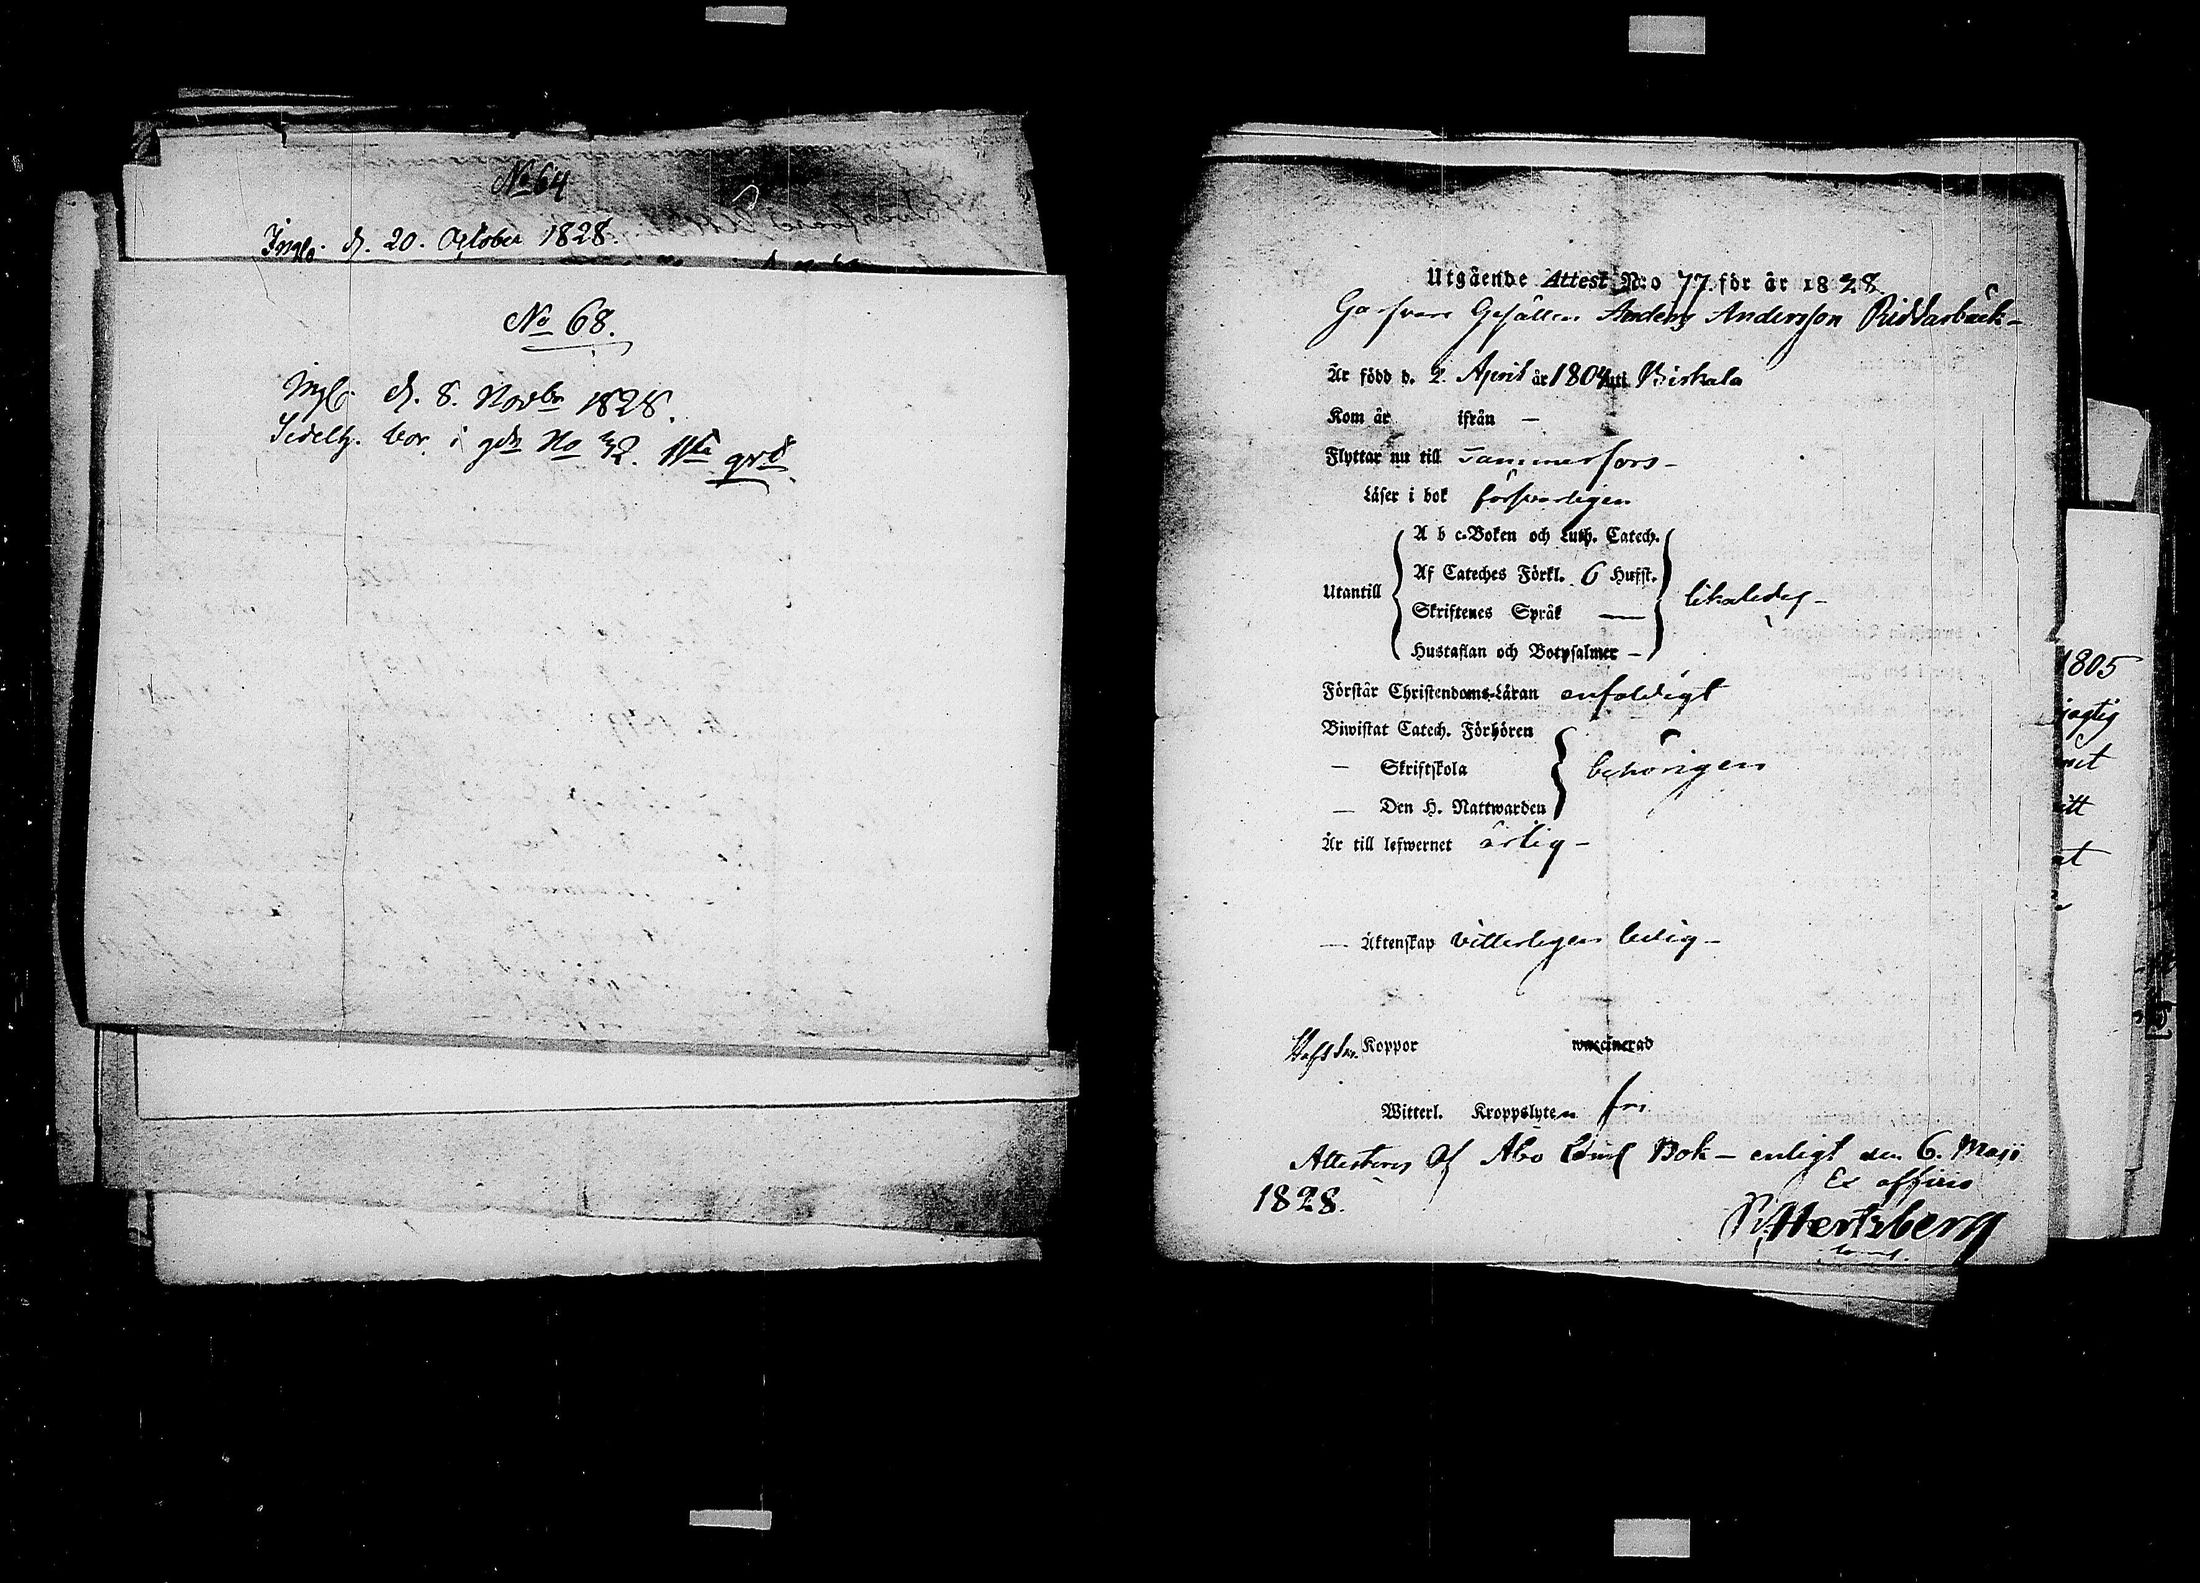 No 64
Ingf. d. 20. October 1828.
No 68.
Ingf. d. 8. Novbr 1828.
i gdn No 32. qrd.
Utgående Attest N:o 77. för år 1828.
Garfvare Gesällen Anders Andersson Riddarbäck -
Är född d. 2. April år 1804 uti Birkala
Kom år ifrån -
Flyttar nu till Tammerfors -
Läser i bok försvarligen
A b c-Boken och Luth. Catech.
Af Cateches Förkl. 6 Hufst.
Utantill
likaledes -
Skriftenes Språk —
Hustaflan och Botpsalmer -
Förstår Christendoms-Läran enfaldigt
Biwistat Catech. Förhören
— Skriftskola behörigen
— Den H. Nattwarden
Är till lefwernet ärlig -
— Äktenskap vitterligen ledig -
Haft Koppor waccinerad
Witterl. Kroppslyten fri
Attesteras af Åbo Bok - enligt den 6. Maji
1828. Ex officio
Hertzberg
1805
jagtig
itt
at